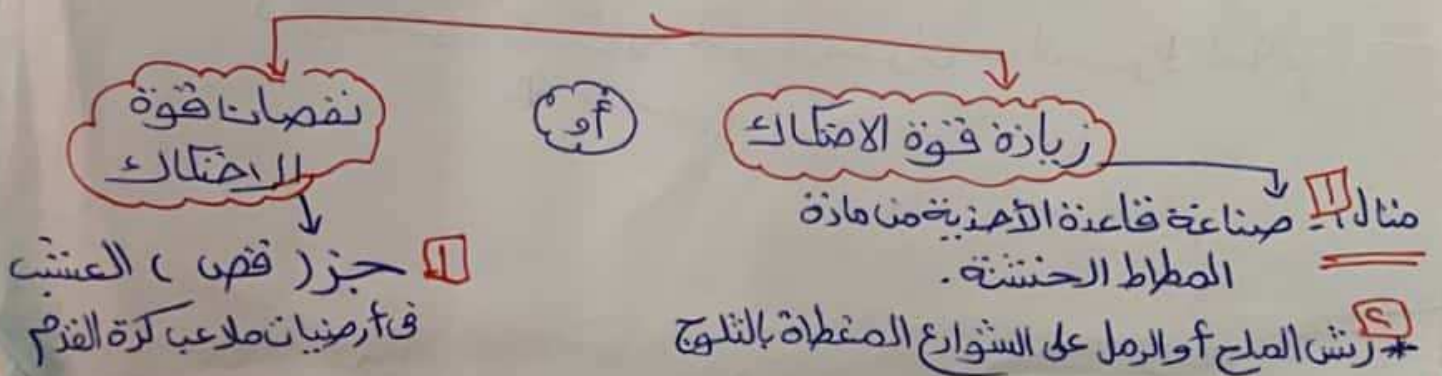 زيادة قوة الاحتكاك
أو
نقصان قوة
الاحتكاك
مثال 1- صناعة قاعدة الأحذية من مادة
المطاط الخشنة.
2* رش الملح أو الرمل على الشوارع المغطاة بالثلوج
1 جز ( قص ) العشب
فى أرضيات ملاعب كرة القدم